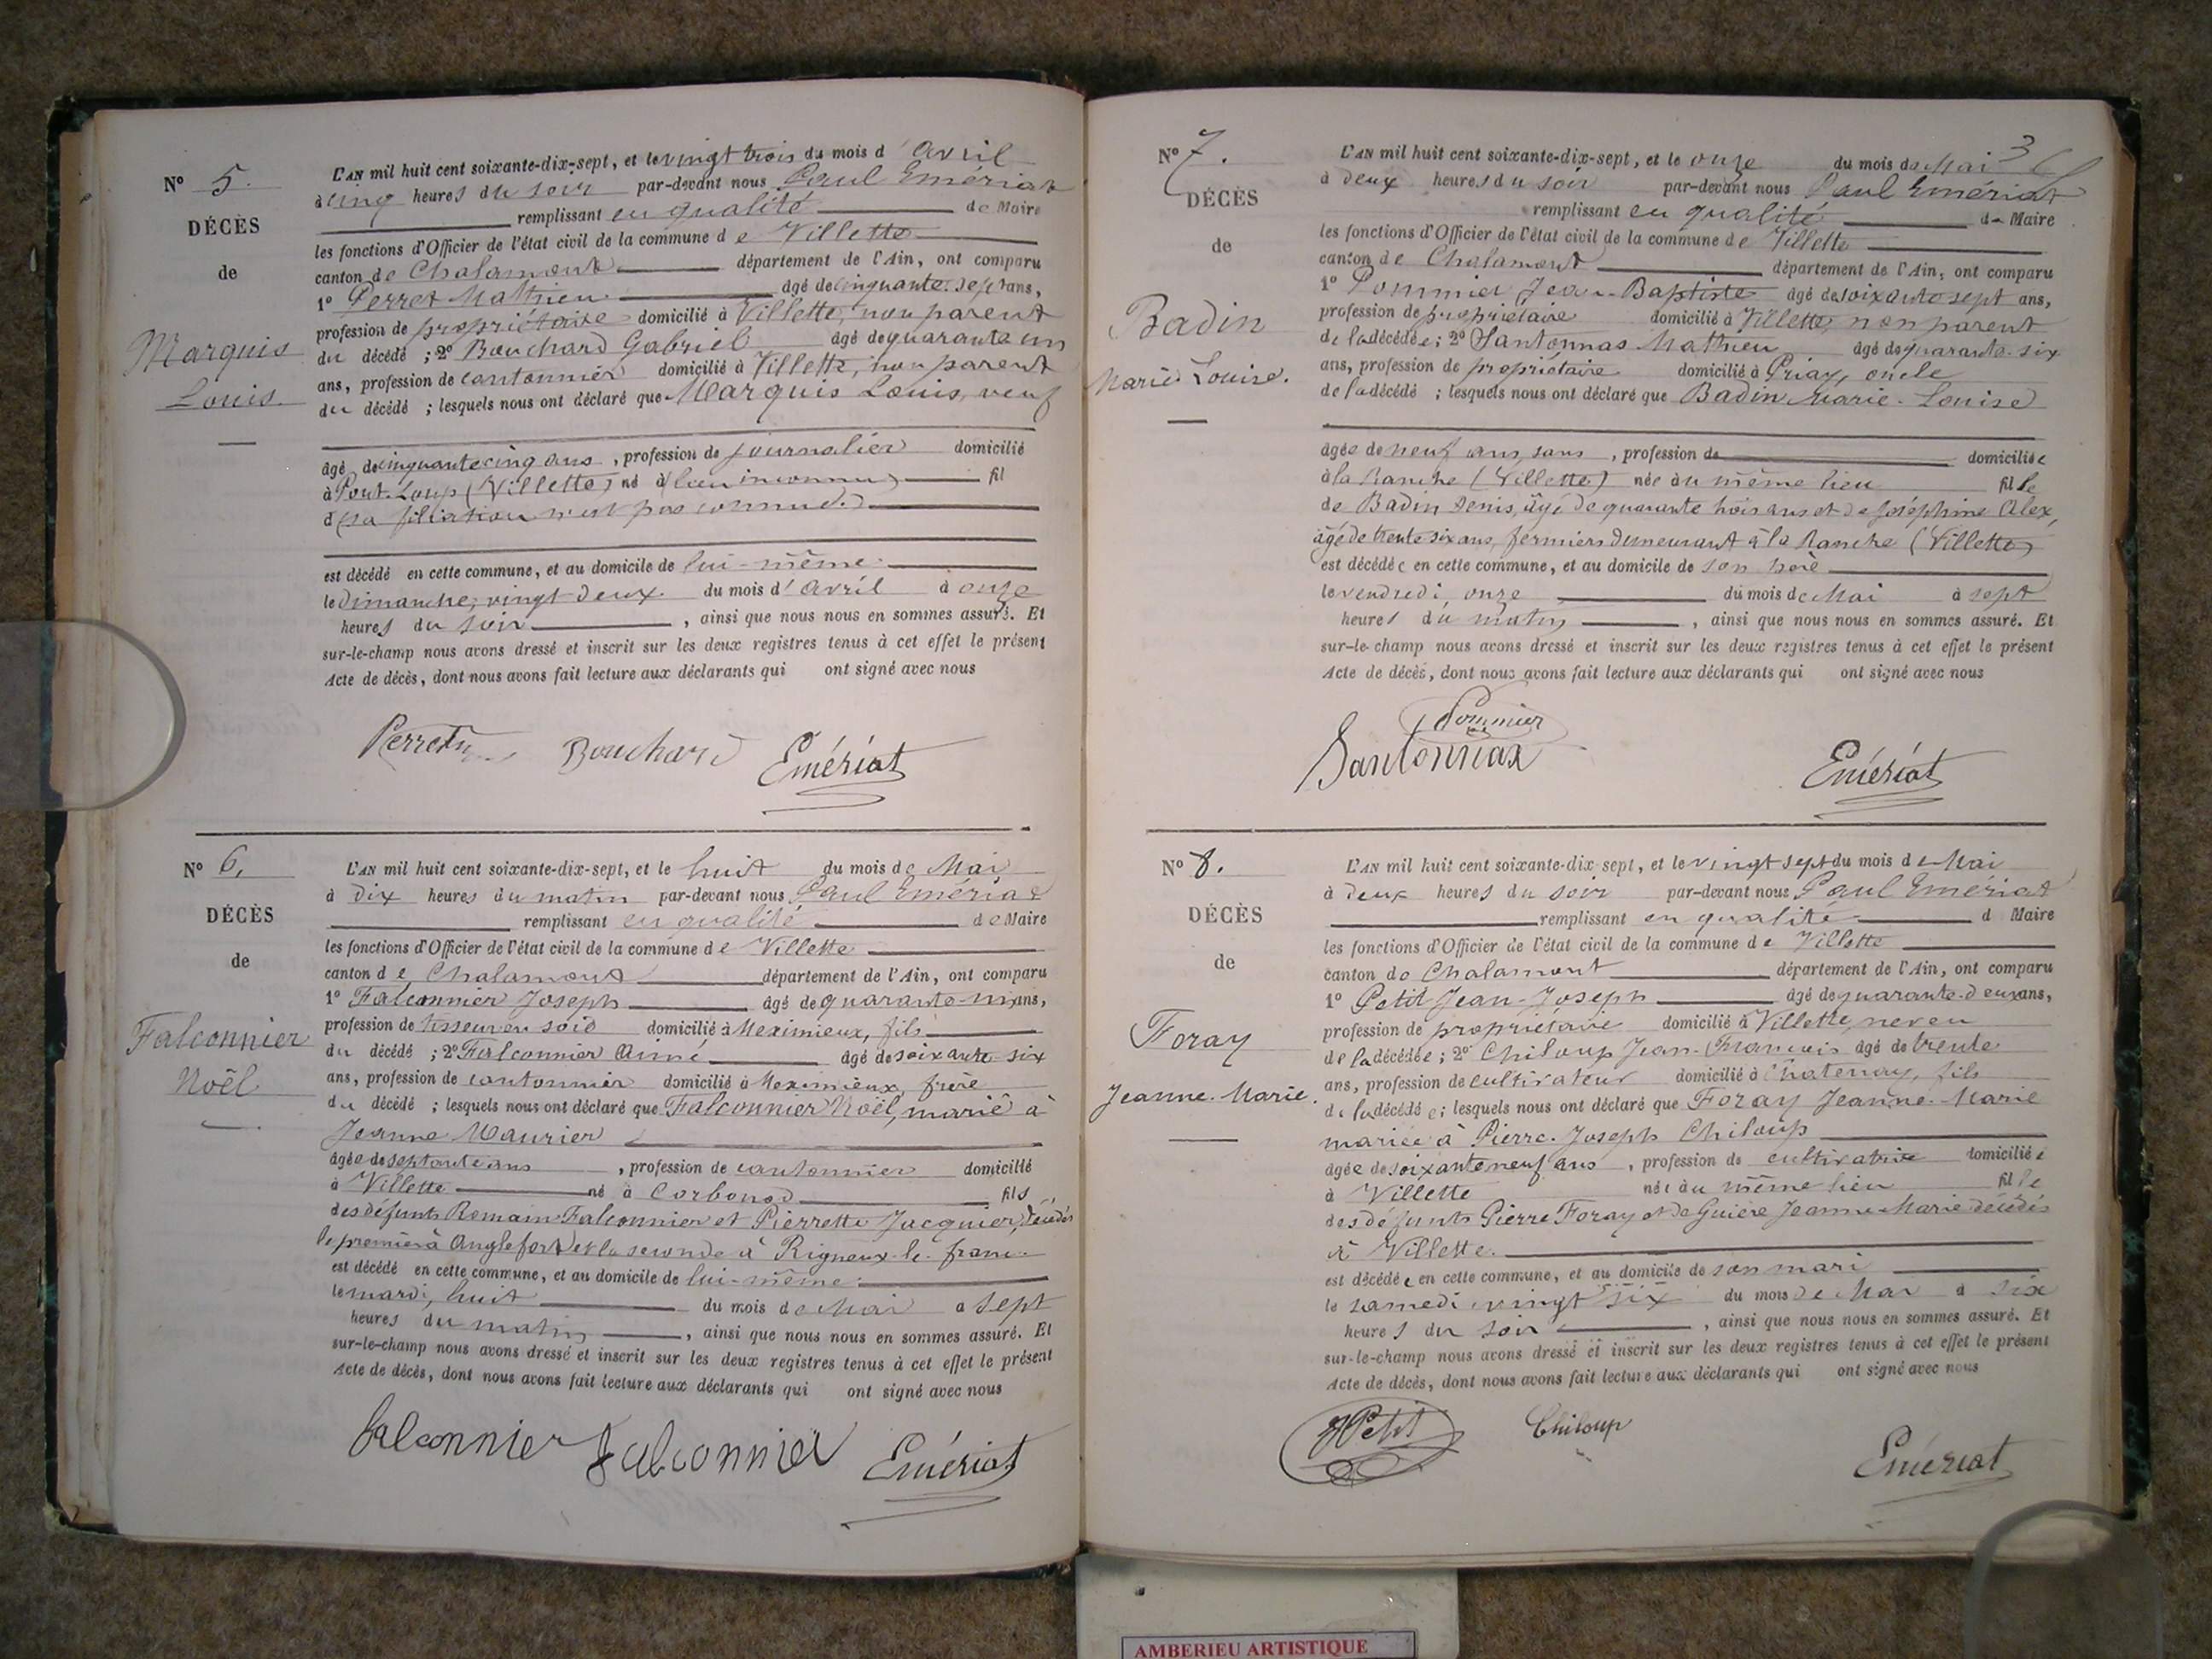 N° 5.
DÉCÈS
de
Marquis
Louis.
L'AN mil huit cent soixante-dix-sept, et le vingt trois du mois d'Avril
à cinq heures du soir par-devant nous Paul Emériat
remplissant en qualité de Maire
les fonctions d'Officier de l'état civil de la commune de Villette
canton de Chalamont département de l'Ain, ont comparu
1° Perret Mathieu âgé de cinquante-sept ans,
profession de propriétaire domicilié à Villette, non parent
du décédé ; 2° Bouchard Gabriel âgé de quarante un
ans, profession de cantonnier domicilié à Villette, non parent
du décédé ; lesquels nous ont déclaré que Marquis Louis, veuf
âgé de cinquante cinq ans, profession de journalier domicilié
à Pont-Loup (Villette) né à (lieu inconnu) fil
d (sa filiation n'est pas connue.)
est décédé en cette commune, et au domicile de lui-même.
le Dimanche, vingt deux du mois d'Avril à onze
heures du soir, ainsi que nous nous en sommes assuré. Et
sur-le-champ nous avons dressé et inscrit sur les deux registres tenus à cet effet le présent
Acte de décès, dont nous avons fait lecture aux déclarants qui ont signé avec nous
Perret Bouchard Emériat
N° 6.
DÉCÈS
de
Falconnier
Noël
L'AN mil huit cent soixante-dix-sept, et le huit du mois de Mai
à dix heures du matin par-devant nous Paul Emériat
remplissant en qualité de Maire
les fonctions d'Officier de l'état civil de la commune de Villette
canton de Chalamont département de l'Ain, ont comparu
1° Falconnier Joseph âgé de quarante ans,
profession de tisseur en soie domicilié à Meximieux, fils
du décédé ; 2° Falconnier Aimé âgé de soixante-six
ans, profession de cantonnier domicilié à Meximieux, frère
du décédé ; lesquels nous ont déclaré que Falconnier Noël, marié à
Jeanne Maurier
âgée de septante ans, profession de cantonnier domicilié
à Villette né à Corbonod fils
des défunts Romain Falconnier et Pierrette Jacquier, décédés
le premier à Anglefort et la seconde à Rigneux-le-franc.
est décédé en cette commune, et au domicile de lui-même.
le mardi, huit du mois de Mai à sept
heures du matin, ainsi que nous nous en sommes assuré. Et
sur-le-champ nous avons dressé et inscrit sur les deux registres tenus à cet effet le présent
Acte de décès, dont nous avons fait lecture aux déclarants qui ont signé avec nous
falconnier falconnier Emériat
3
N° 7.
DÉCÈS
de
Badin
Marie Louise.
L'AN mil huit cent soixante-dix-sept, et le onze du mois de Mai
à deux heures du soir par-devant nous Paul Emériat
remplissant en qualité de Maire
les fonctions d'Officier de l'état civil de la commune de Villette
canton de Chalamont département de l'Ain, ont comparu
1° Pommier Jean-Baptiste âgé de soixante sept ans,
profession de propriétaire domicilié à Villette, non parent
de la décédée ; 2° Santonnas Mathieu âgé de quarante-six
ans, profession de propriétaire domicilié à Priay, oncle
de la décédé ; lesquels nous ont déclaré que Badin Marie-Louise
âgée de neuf ans, sans, profession de domiciliée
à la Ranche (Villette) née au même lieu fille
de Badin Denis, âgé de quarante trois ans et de Joséphine Alex,
âgé de trente six ans, fermiers demeurant à la Ranche (Villette)
est décédée en cette commune, et au domicile de son père
le vendredi, onze du mois de Mai à sept
heures du matin, ainsi que nous nous en sommes assuré. Et
sur-le-champ nous avons dressé et inscrit sur les deux registres tenus à cet effet le présent
Acte de décès, dont nous avons fait lecture aux déclarants qui ont signé avec nous
Pommier
Santonnax Emériat
N° 8.
DÉCÈS
de
Foray
Jeanne-Marie.
L'AN mil huit cent soixante-dix-sept, et le vingt sept du mois de Mai
à deux heures du soir par-devant nous Paul Emériat
remplissant en qualité d Maire
les fonctions d'Officier de l'état civil de la commune de Villette
canton de Chalamont département de l'Ain, ont comparu
1° Petit Jean-Joseph âgé de quarante-deux ans,
profession de propriétaire domicilié à Villette, neveu
de la décédée ; 2° Chiloup Jean-François âgé de trente
ans, profession de cultivateur domicilié à Chatenay, fils
de la décédée ; lesquels nous ont déclaré que Foray Jeanne-Marie
mariée à Pierre-Joseph Chiloup
âgée de soixante neuf ans, profession de cultivatrice domiciliée
à Villette née au même lieu fille
des défunts Pierre Foray et de Guière Jeanne-Marie décédés
à Villette.
est décédée en cette commune, et au domicile de son mari
le samedi vingt six du mois de Mai à six
heures du soir, ainsi que nous nous en sommes assuré. Et
sur-le-champ nous avons dressé et inscrit sur les deux registres tenus à cet effet le présent
Acte de décès, dont nous avons fait lecture aux déclarants qui ont signé avec nous
JPetit Chiloup Emériat
AMBERIEU ARTISTIQUE